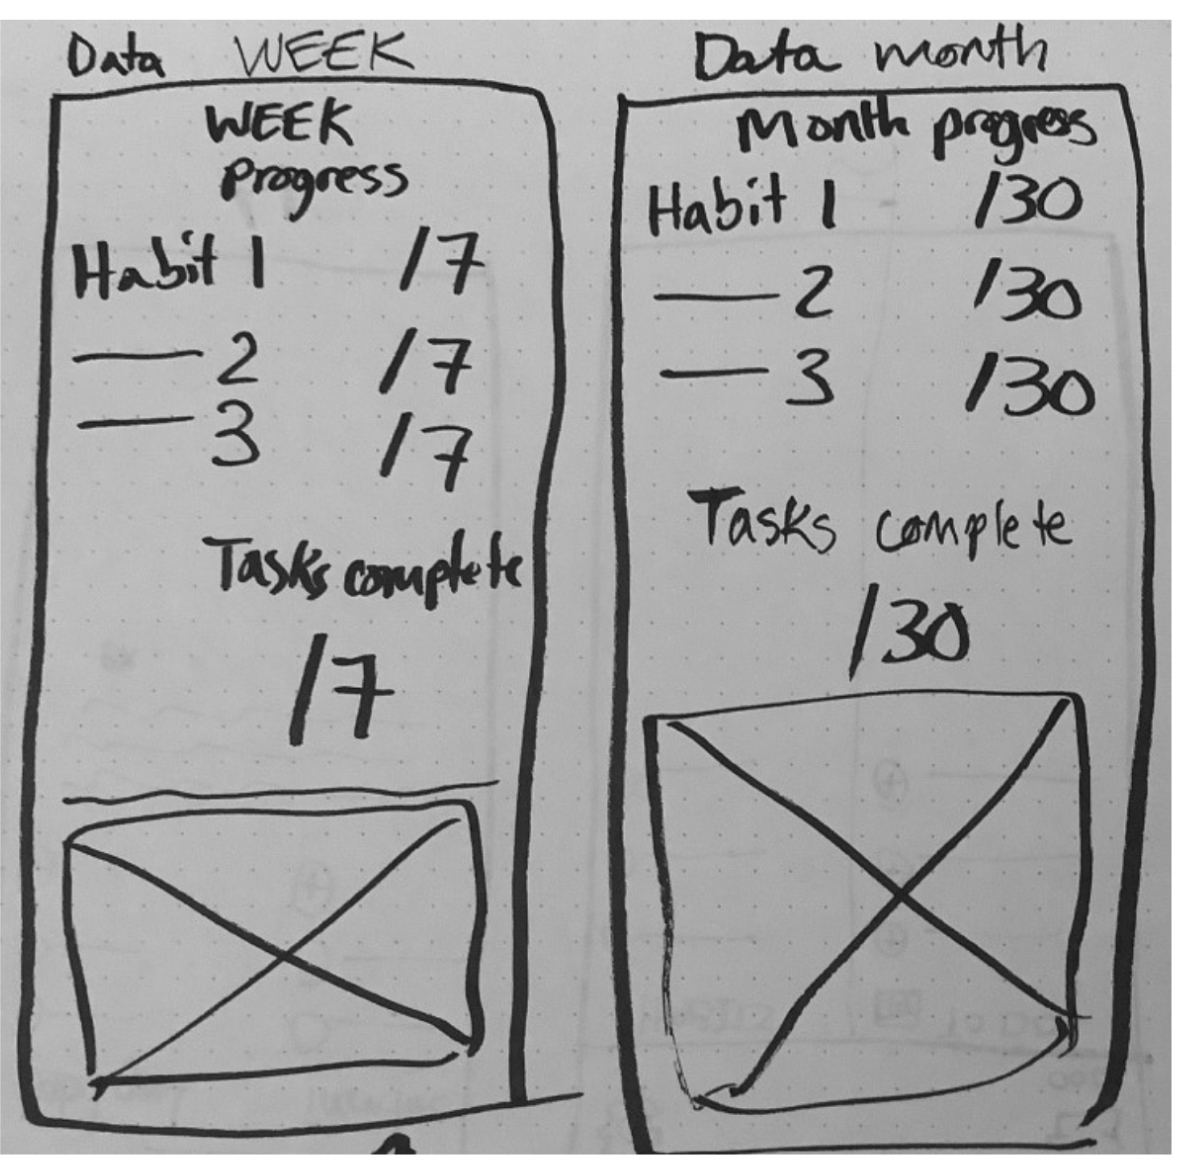 Data WEEK
WEEK
Progress
Habit 1 /7
2 /7
3 /7
Tasks complete
/7
Data month
Month progress
Habit 1 /30
2 /30
3 /30
Tasks complete
/30